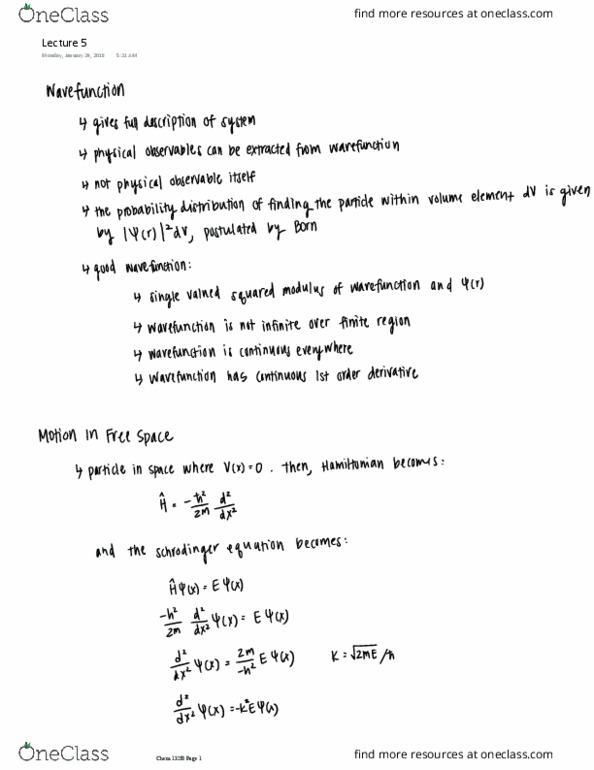 OneClass
find more resources at oneclass.com
Lecture 5
Monday, January 29, 2018
Wavefunction
↳ gives full description of system
↳ physical observables can be extracted from wavefunction
↳ not physical observable itself
↳ the probability distribution of finding the particle within volume element dV is given
by |Ψ(r)|²dV, postulated by Born
↳ good wavefunction:
↳ single valued squared modulus of wavefunction and Ψ(r)
↳ wavefunction is not infinite over finite region
↳ wavefunction is continuous everywhere
↳ wavefunction has continuous 1st order derivative
Motion In Free Space
↳ particle in space where V(x)=0. Then, Hamiltonian becomes:
Ĥ = -ħ²/2m d²/dx²
and the schrodinger equation becomes:
ĤΨ(x) = EΨ(x)
-ħ²/2m d²/dx² Ψ(x) = EΨ(x)
d²/dx² Ψ(x) = 2m/-ħ² EΨ(x) K = √2mE/ħ
d²/dx² Ψ(x) = -k²EΨ(x)
OneClass
Chem 132B Page 1
find more resources at oneclass.com